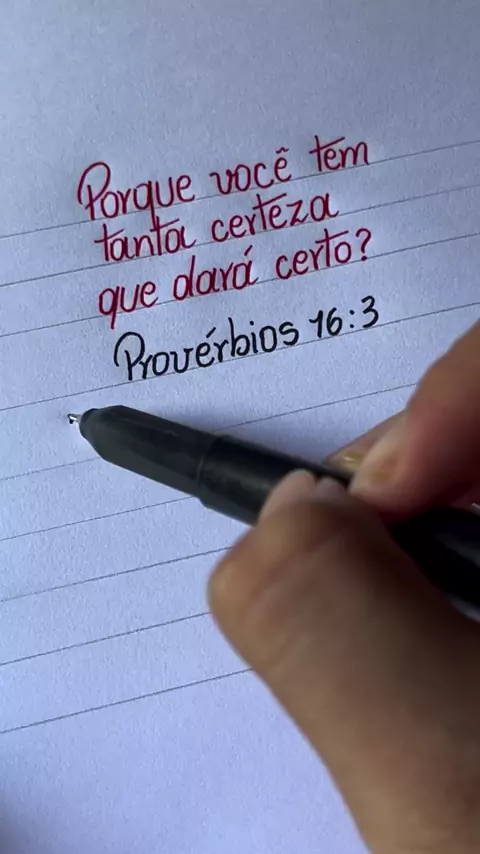 Porque você tem
tanta certeza
que dará certo?
Provérbios 16:3